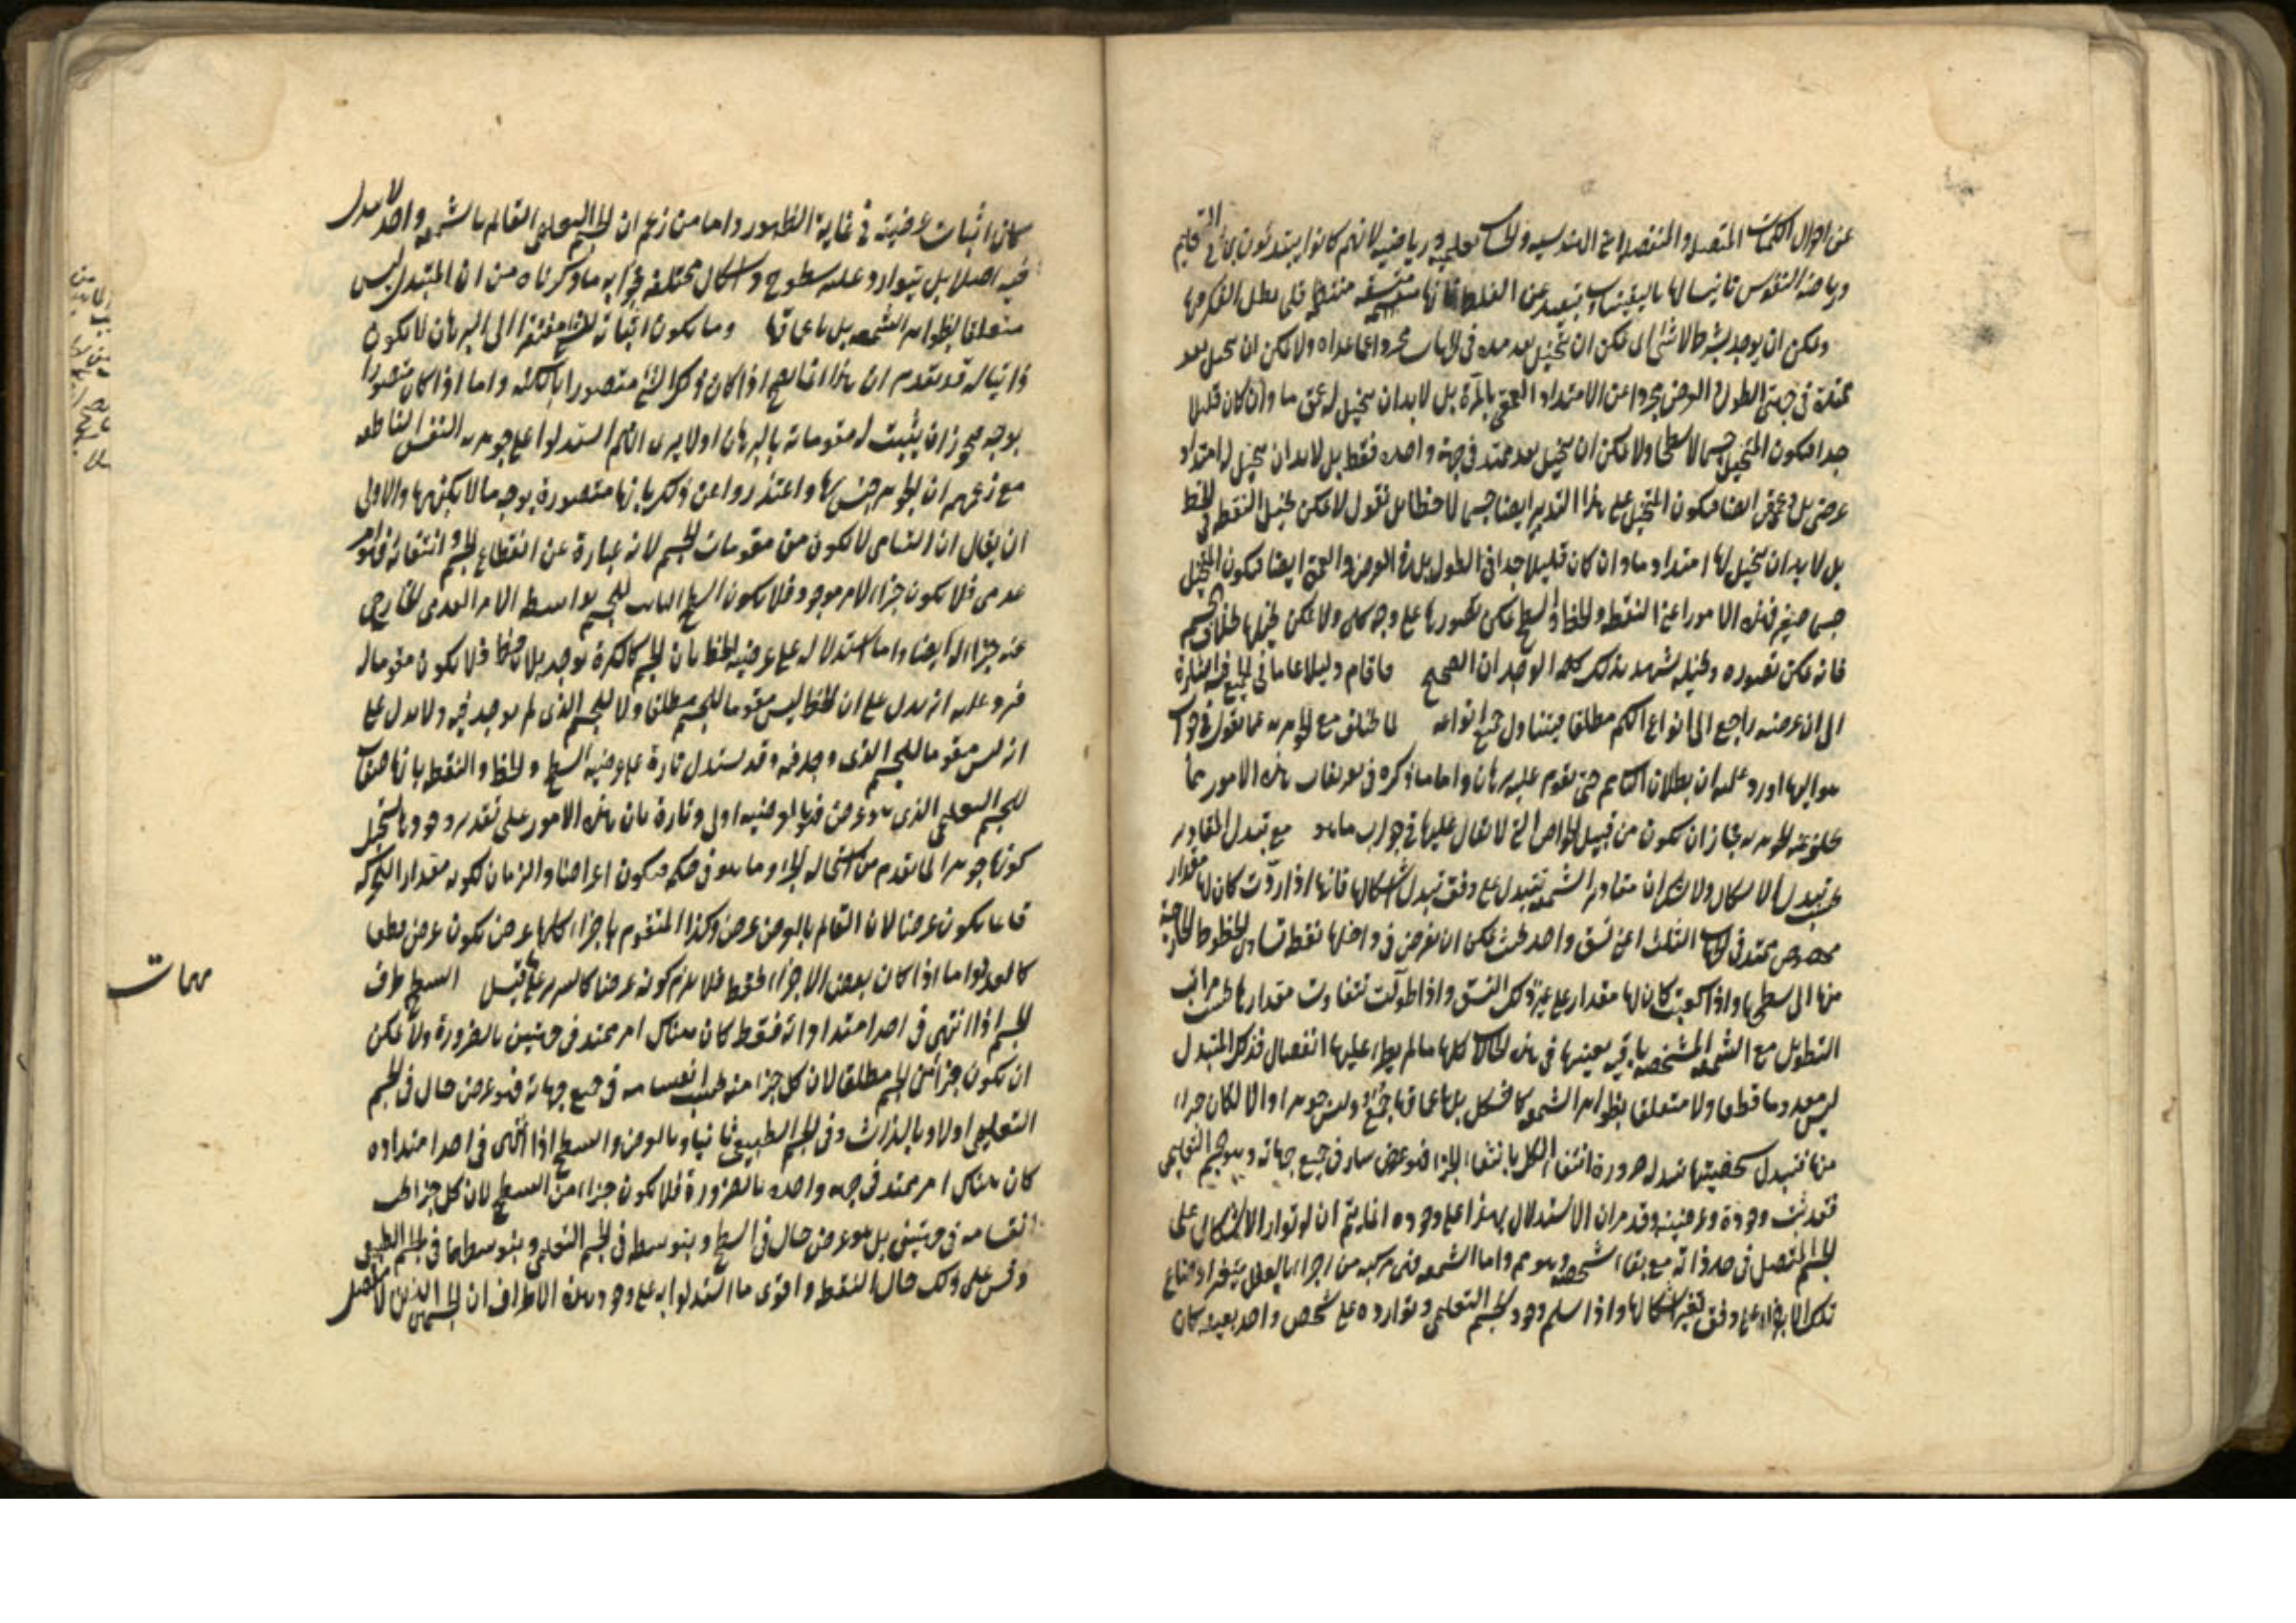 عن احوال الكميات المتصلة والمنفصلة اعنى الهندسية والحساب تعليمية ورياضية لانهم كانوا يبتدئون بها فى التعليم
ورياضة النفوس تانيسا لها باليقينيات وتبعيد عن الغلط فانها متسقة منتظمة قلما يبطل الفكر فيها
ويمكن ان يوجد بشرط لا شئ اى يمكن ان يتخيل بعد ممتد فى الجهات مجردا عما عداه ولا يمكن ان يتخيل بعد
ممتد فى جهتى الطول والعرض مجردا عن الامتداد العمقى بالمرة بل لا بد ان يتخيل له عمق ما وان كان قليلا
جدا فيكون المتخيل جسما لا سطحا ولا يمكن ان يتخيل بعد ممتد فى جهة واحدة فقط بل لا بد ان يتخيل له امتداد
عرضى بل وعمقى ايضا فيكون المتخيل على هذا التقدير ايضا جسما لا خطا بل نقول لا يمكن تخيل النقطة
بل لا بد ان يتخيل لها امتداد ما وان كان قليلا جدا فى الطول بل فى العرض والعمق ايضا فيكون المتخيل
جسما صغيرا فهذه الامور اعنى النقطة والخط والسطح يمكن تصورها على وجه كلى ولا يمكن تخيلها بخلاف الجسم
فانه يمكن تصوره وتخيله يشهد بذلك كله الوجدان الصحيح وما قام دليلا عاما فى الجميع
الى ان عرضه راجع الى انواع الكم مطلقا فيتناول جميع انواعه لما تخلف مع الجوهرية عما يقول فى جواب
ما هو اليها اورد عليه ان بطلان التالى حتى يقوم عليه برهان واما ما ذكره فى تعريفات هذه الامور مما
تخلو عنه الجوهرية فجاز ان يكون من قبيل الخواص التى لا يقال عليها فى جواب ما هو مع تبدل المقادير
بحسب تبدل الاشكال ولا شك ان مقادير الشمعة تتبدل على وفق تبدل اشكالها فانها اذا دورت كان لها مقدار
مخصوص ممتد فى الجهات الثلث اعنى نسق واحد بحيث يمكن ان يفرض فى داخلها نقطة تتساوى الخطوط الخارجة
منها الى سطحها واذا كعبت كان لها مقدار على غير ذلك النسق واذا طولت تتفاوت مقدارها بحسب مراتب
التطويل مع ان الشمعة المشخصة باقية بعينها فى هذه الحالات كلها ما لم يطرء عليها انفصال فذلك المتبدل
ليس معدوما قطعا ولا متعلقا بظواهر الشمعة كالشكل بل باعماقها جميعا وليس جوهرا والا لكان جزاء
منها فتبدل شخصيتها بتبدله ضرورة انتفاء الكل بانتفاء الجزء فهو عرض سار فى جميع جهاته وهو الجسم التعليمى
فقد ثبت وجوده وعرضيته وقد مر ان الاستدلال بهذا على وجوده انما يتم ان لو توارد الاشكال على
الجسم المتصل فى حد ذاته مع بقاء شخصه وهو مم واما الشمعة فهى مركبة من اجزاء بالفعل يتغير اوضاع
تلك الاجزاء على وفق تغير اشكالها واذا سلم وجود الجسم التعليمى وتوارده على شخص واحد بعينه كان
كان اثبات عرضيته فى غاية الظهور واما من زعم ان الجسم التعليمى القائم بالشمعة واحد لا تبدل
فيه اصلا بل يتوارد عليه سطوح واشكال مختلفة فجوابه ما ذكرناه من ان المتبدل ليس
متعلقا بظواهر الشمعة بل باعماقها وما يكون اثباته للشئ مفتقرا الى البرهان لا يكون
ذاتيا له قد تقدم ان هذا انما يصح اذا كان ذلك الشئ متصورا بالكنه واما اذا كان متصورا
بوجه فيجوز ان يثبت له مقوماته بالبرهان اولا يرى انهم استدلوا على جوهرية النفس الناطقة
مع زعمهم ان الجوهر جنس لها واعتذروا عن ذلك بانها متصورة بوجه ما لا بكنهها والاولى
ان يقال ان التناهى لا يكون من مقومات الجسم لانه عبارة عن انقطاع الجسم وانتفائه فهو امر
عدمى فلا يكون جزاء لامر موجود فلا يكون السطح الثابت للجسم بواسطة الامر العدمى الخارجى
عنه جزاء له ايضا واما استدلاله على عرضية الخط بان الجسم كالكرة يوجد بدون خط فلا يكون مقوما له
فيرد عليه انه يدل على ان الخط ليس مقوما للجسم مطلقا ولا للجسم الذى لم يوجد فيه ولا يدل على
انه ليس مقوما للجسم الذى وجد فيه وقد يستدل تارة على عرضية السطح والخط والنقطة بانها صفات
للجسم التعليمى الذى هو عرض فهى بالعرضية اولى وتارة بان هذه الامور على تقدير وجودها يستحيل
كونها جوهرا لما تقدم من استحالة الجزء وما هو فى حكمه فيكون اعراضا والزمان لكونه مقدار الحركة
قائما يكون عرضا لان القائم بالعرض عرض وكذا المتقوم باجزاء كلها عرض يكون عرض قطعا
كالعدد واما اذا كان بعض الاجزاء فقط فلا يلزم كونه عرضا كالسرير على ما قيل السطح طرف
الجسم اذا انتهى فى احد امتداداته فقط كان هناك امر ممتد فى جهتين بالضرورة ولا يمكن
ان يكون جزأ من الجسم مطلقا لان كل جزء منه يجب انقسامه فى جميع جهاته فهو عرض حال فى الجسم
التعليمى اولا وبالذات وفى الجسم الطبيعى ثانيا وبالعرض والسطح اذا انتهى فى احد امتداده
كان هناك امر ممتد فى جهة واحدة بالضرورة فلا يكون جزاء من السطح لان كل جزء يجب
انقسامه فى جهتين بل هو عرض حال فى السطح وبتوسطه فى الجسم التعليمى وبتوسطهما فى الجسم الطبيعى
وقس على ذلك حال النقطة واقوى ما استدلوا به على وجود هذه الاطراف ان الجسمين الذين
مهمات